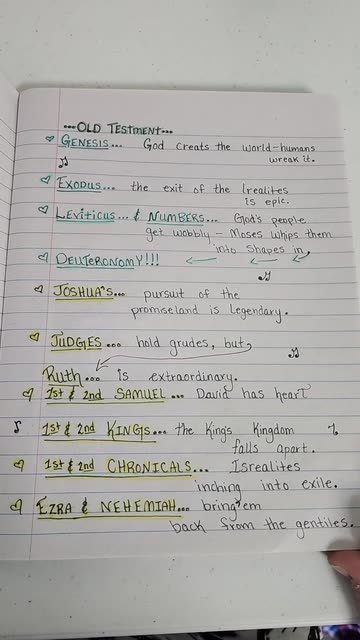 ...OLD TESTMENT...
GENESIS... God creates the world-humans
wreak it.
EXODUS... the exit of the Irealites
is epic.
LEVITICUS... & NUMBERS... God's people
get wobbly - Moses whips them
into shapes in
DEUTERONOMY!!!
JOSHUA'S... pursuit of the
promiseland is legendary.
JUDGES... hold grudes, but,
Ruth... is extraordinary.
1st & 2nd SAMUEL... David has heart
1st & 2nd KINGS... the King's Kingdom
falls apart.
1st & 2nd CHRONICALS... Isrealites
inching into exile.
EZRA & NEHEMIAH... bring'em
back from the gentiles.